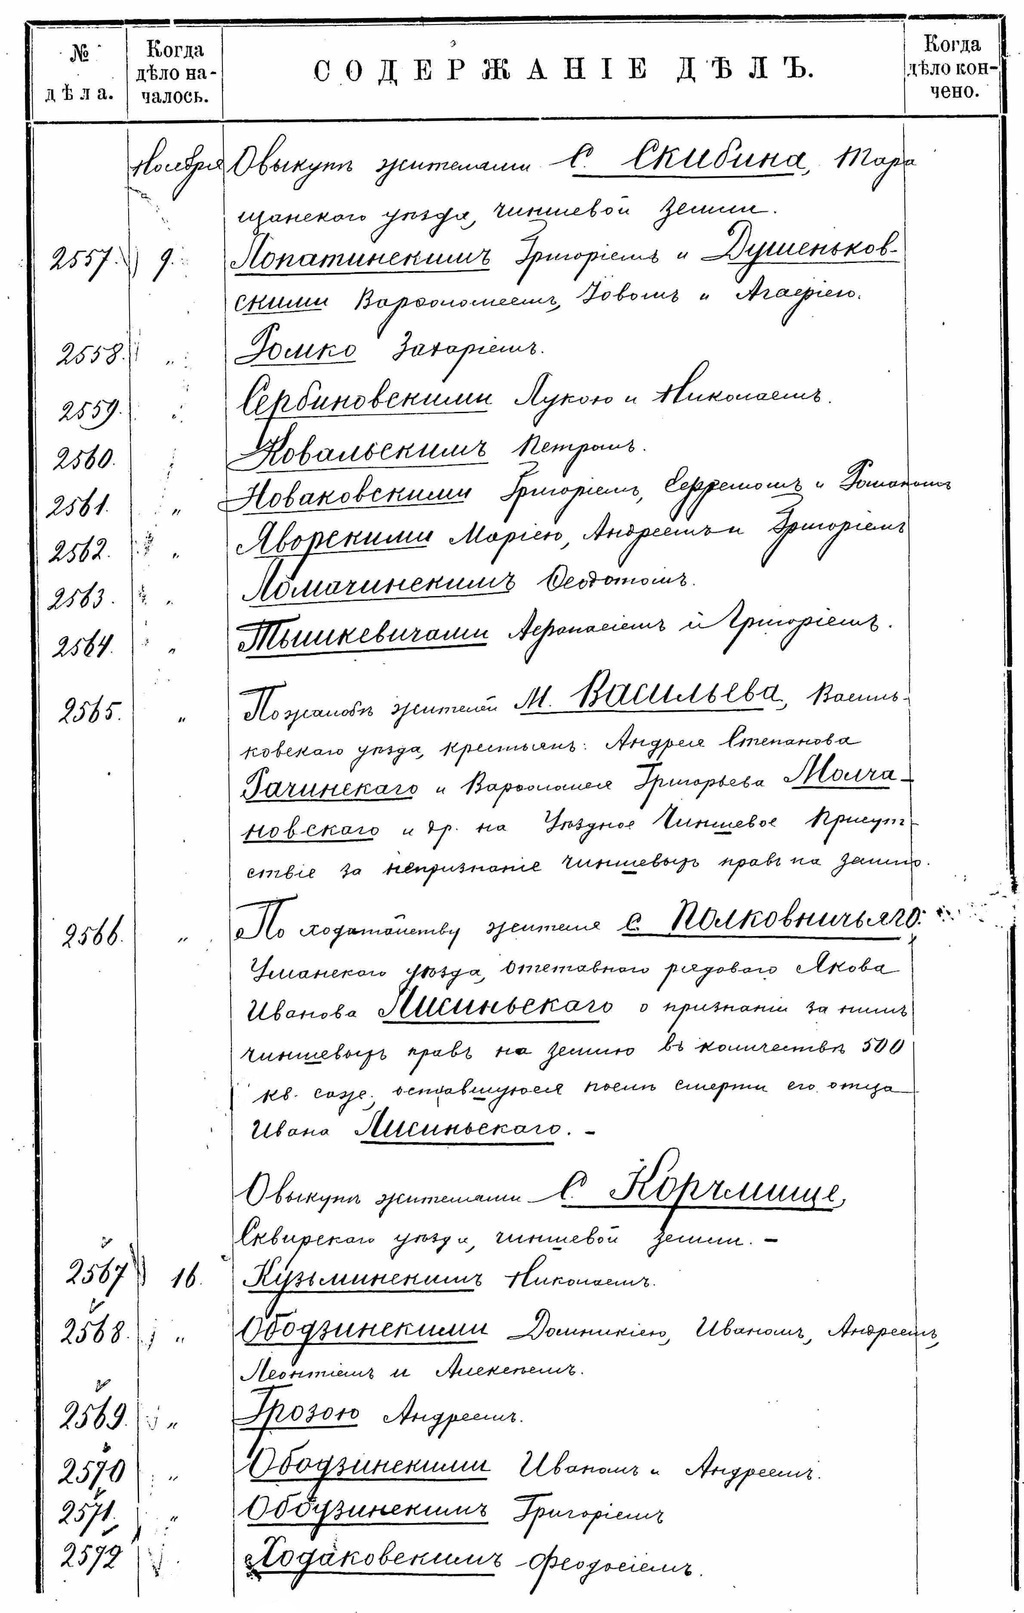 № дѣла.
Когда дѣло началось.
СОДЕРЖАНІЕ ДѢЛЪ.
Когда дѣло кончено.
Ноября О выкупѣ жителями С. Скибина, Тара
щанскаго уѣзда, чиншевой земли.
2557. 9. Лопатинскимъ Григоріемъ и Душеньков-
скими Варѳоломеемъ, Іовомъ и Агафіею.
2558. „ Ромко Захаріемъ.
2559. „ Сербиновскими Лукою и Николаемъ.
2560. „ Ковальскимъ Петромъ.
2561. „ Новаковскими Григоріемъ, Ефремомъ и Романомъ
2562. „ Яворскими Маріею, Андреемъ и Григоріемъ
2563. „ Ломачинскимъ Ѳеодотомъ.
2564. „ Тышкевичами Афанасіемъ и Григоріемъ.
2565. „ По жалобѣ жителей М. Васильева, Василь-
ковскаго уѣзда, крестьянъ: Андрея Степанова
Рачинскаго и Варѳоломея Григорьева Молча-
новскаго и др. на Уѣздное Чиншевое Присут-
ствіе за непризнаніе чиншевыхъ правъ на землю.
2566. „ По ходатайству жителя С. Полковничьяго.
Уманскаго уѣзда, отставного рядового Якова
Иванова Лисиньскаго о признаніи за нимъ
чиншевыхъ правъ на землю въ количествѣ 500
кв. саж., оставшуюся послѣ смерти его отца
Ивана Лисиньскаго. –
О выкупѣ жителями С. Корчмище,
Сквирскаго уѣзда, чиншевой земли. –
2567 16. Кузьминскимъ Николаемъ.
2568. „ Ободзинскими Домникіею, Иваномъ, Андреемъ,
Леонтіемъ и Алексѣемъ.
2569. „ Грозою Андреемъ.
2570 „ Ободзинскими Иваномъ и Андреемъ.
2571. „ Ободзинскимъ Григоріемъ
2572 Ходаковскимъ Феодосіемъ.